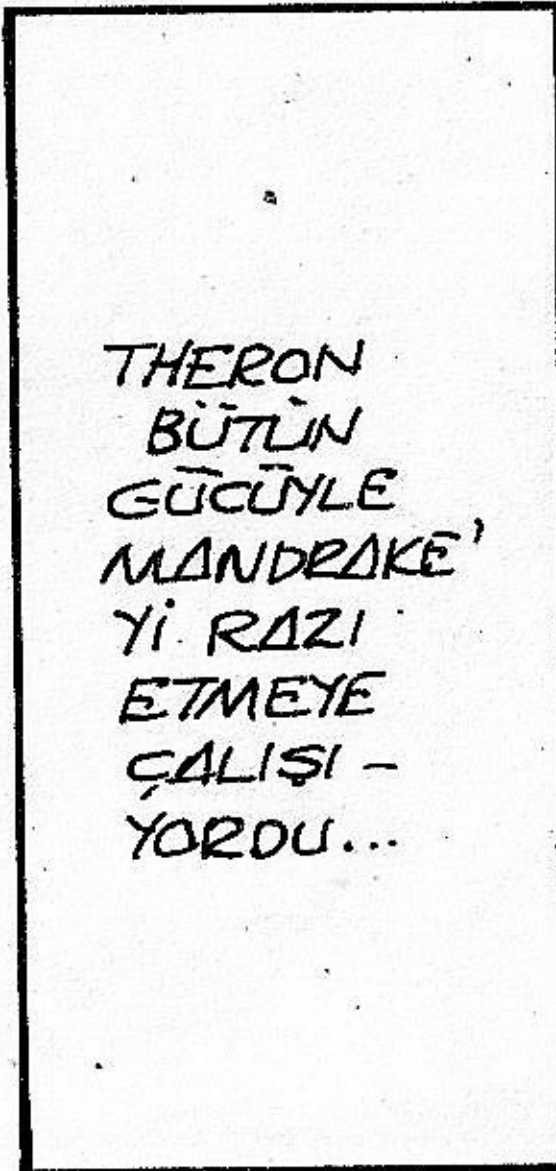 THERON
BÜTÜN
GÜCÜYLE
MANDRAKE'
Yİ RAZI
ETMEYE
ÇALIŞI-
YORDU...